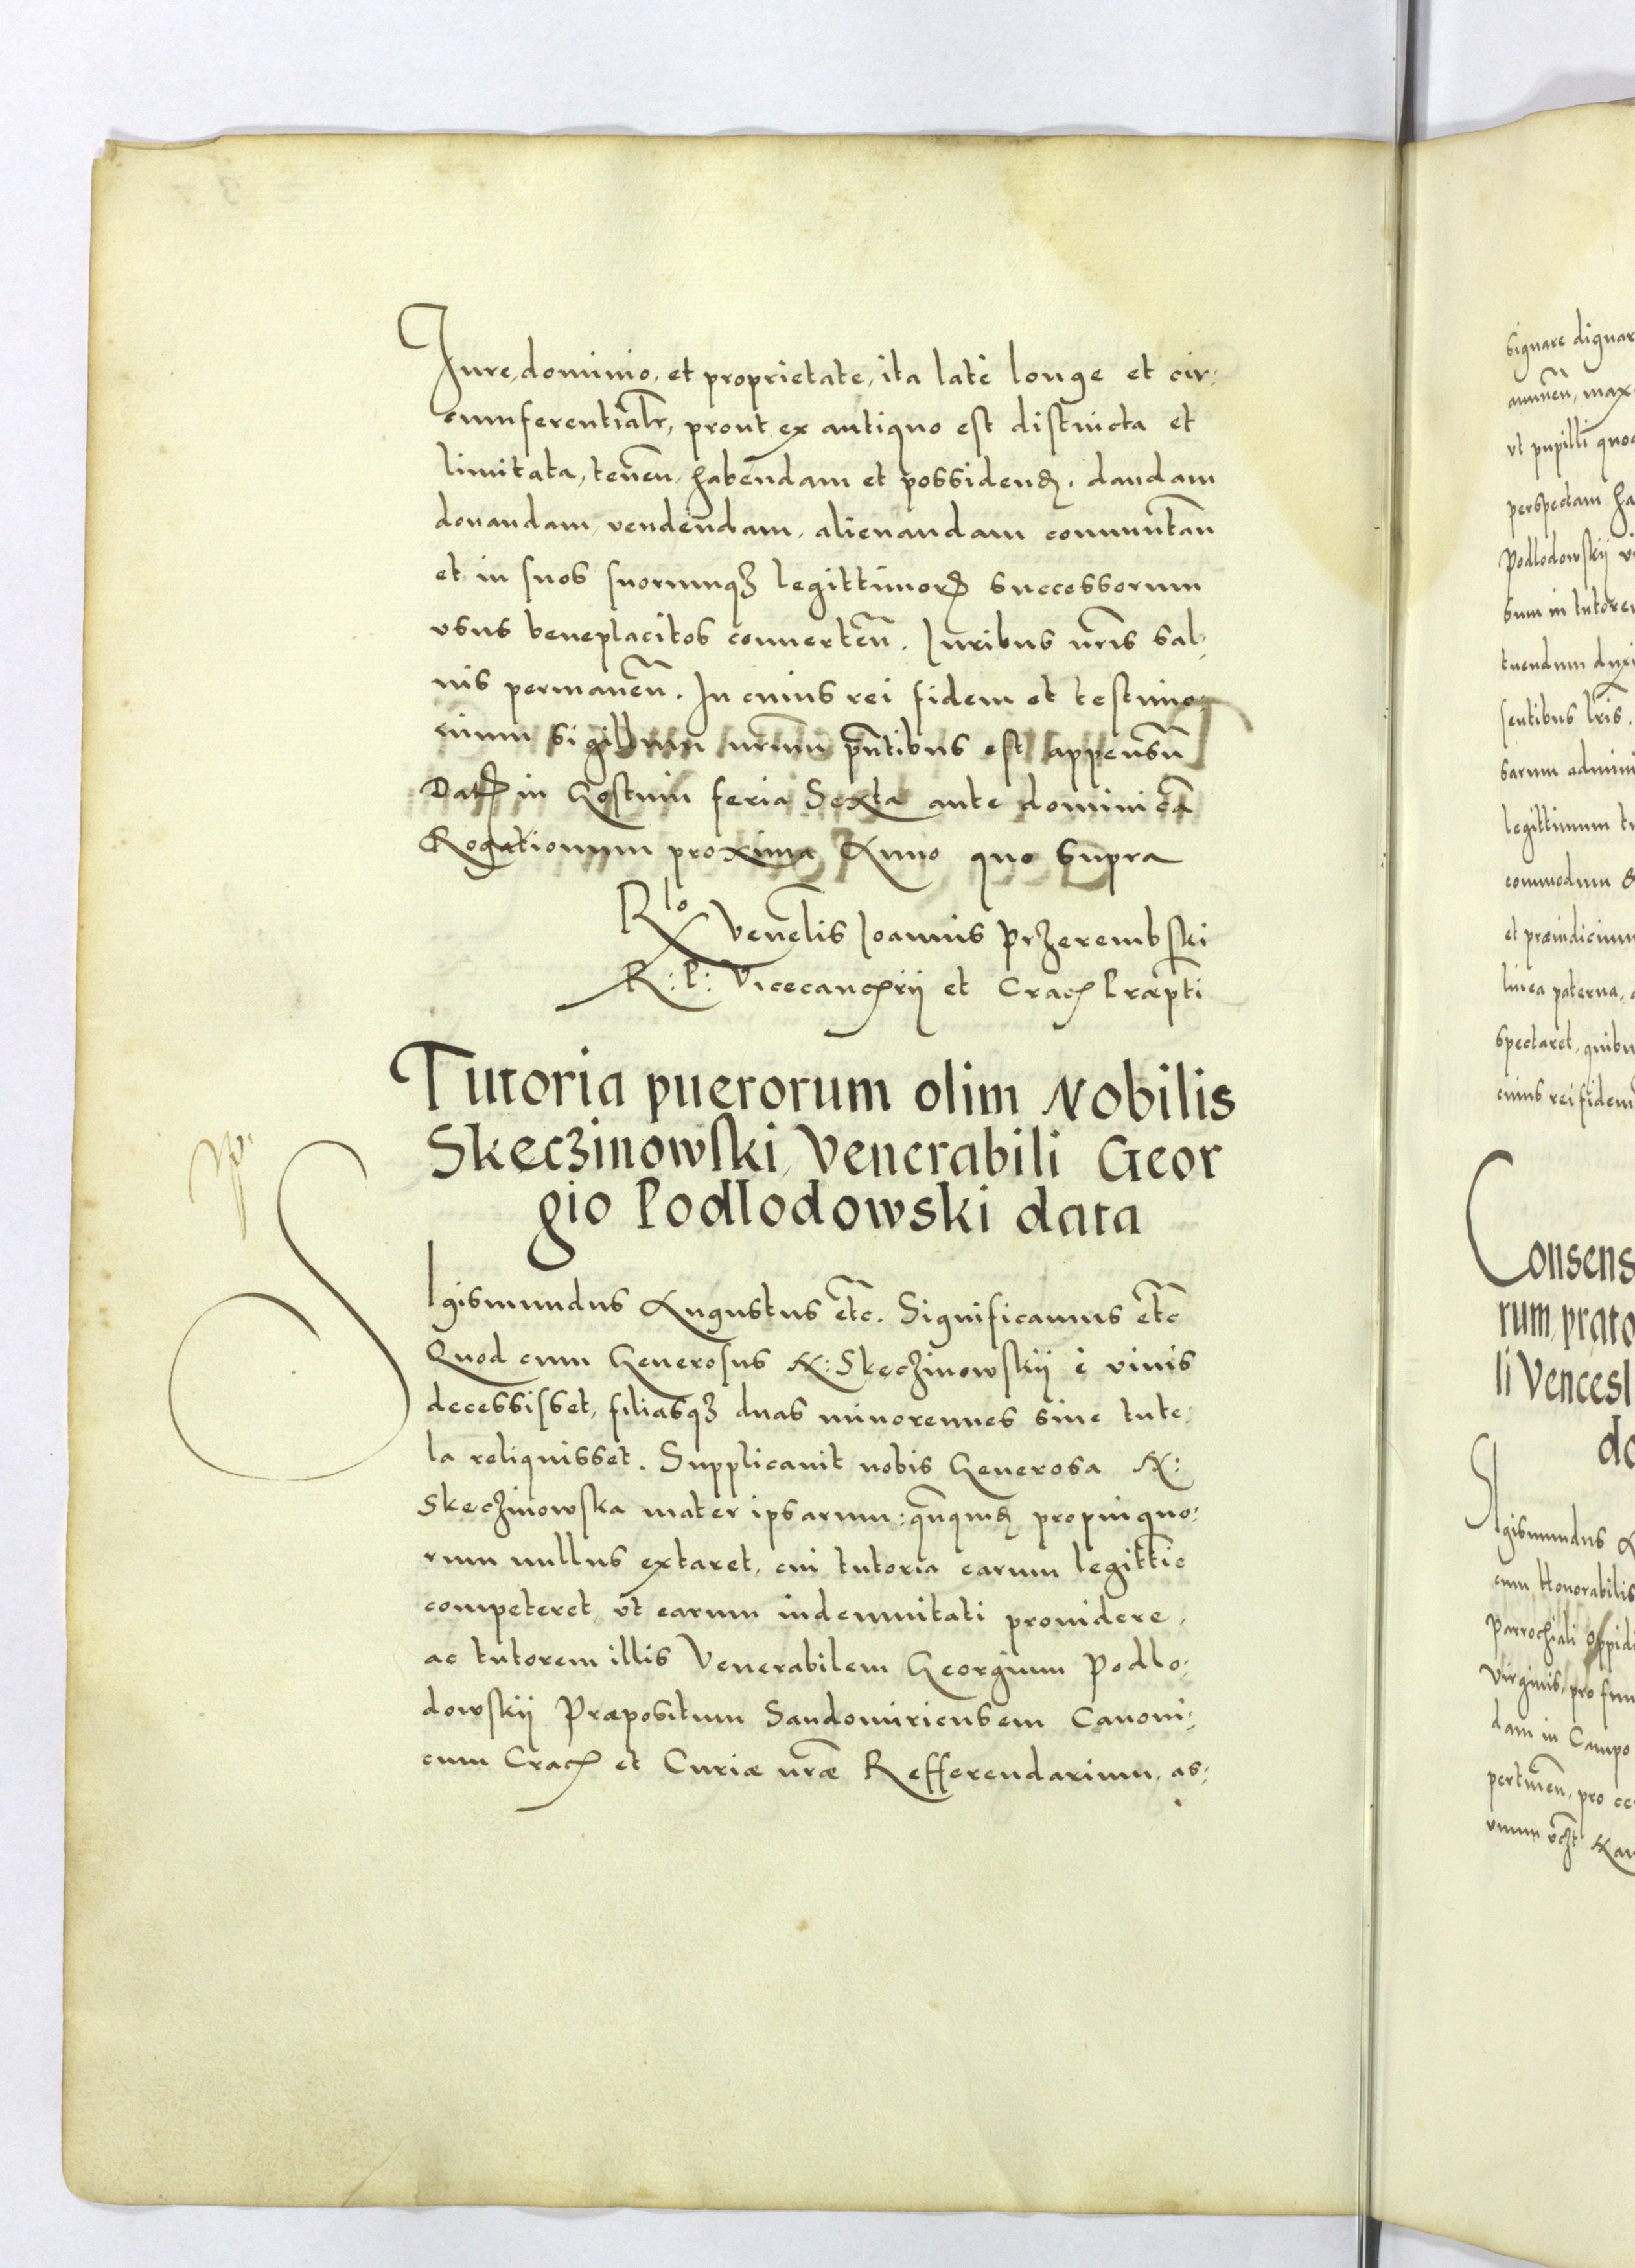 Jure, dominio, et proprietate, ita late longe et cir:
cumferentialr, prout ex antiquo est distincta et
limitata, tenen, habendam et possidend. dandam
donandam, vendendam, alienandam commutan
et in suos suorumq3 legittimor successorum
vsus beneplacitos conuerten. Juribus nris sal:
uis permanen. In cuius rei fidem et testimo:
nium sigillum nrum pntibus est appensu
Dat in Gostmin feria Sexta ante dominica
Rogationum proxima Anno quo supra
Rlo Venelis Joannis Przerembski
R: P: Vicecancrij et Crac Præpti
Tutoria puerorum olim Nobilis
Skeczinowski, Venerabili Geor
gio Podlodowski data
SIgismundus Augustus etc. Significamus etc
Quod cum Generosus N: Skeczinowskij è viuis
decessisset, filiasq3 duas minorennes sine tute:
la reliquisset. Supplicauit nobis Generosa N:
Skeczinowska mater ipsarum: qnquid propinquo:
rum nullus extaret, cui tutoria earum legittie
competeret, vt earum indemnitati prouidere,
ac tutorem illis Venerabilem Georgium Podlo:
dowskij Præpositum Sandomiriensem Canoni:
cum Crac et Curiæ nræ Refferendarium, as:
signare dignar
ut pupilli quo
perspectam ha
Podlodowskij vi
sum in tutorem
tuendum duxi
sentibus lris.
sarum admini
legittimum tu
commodum &
et præiudicium
linea paterna,
spectaret, quibu
cuius rei fidem
Consens
rum, prato
li Vencesl
do
SIgismundus A
cum Honorabilis
Parrochiali oppidi
Virginis, pro fun
dam in Campo
pertinen, pro ce
vnum vczt